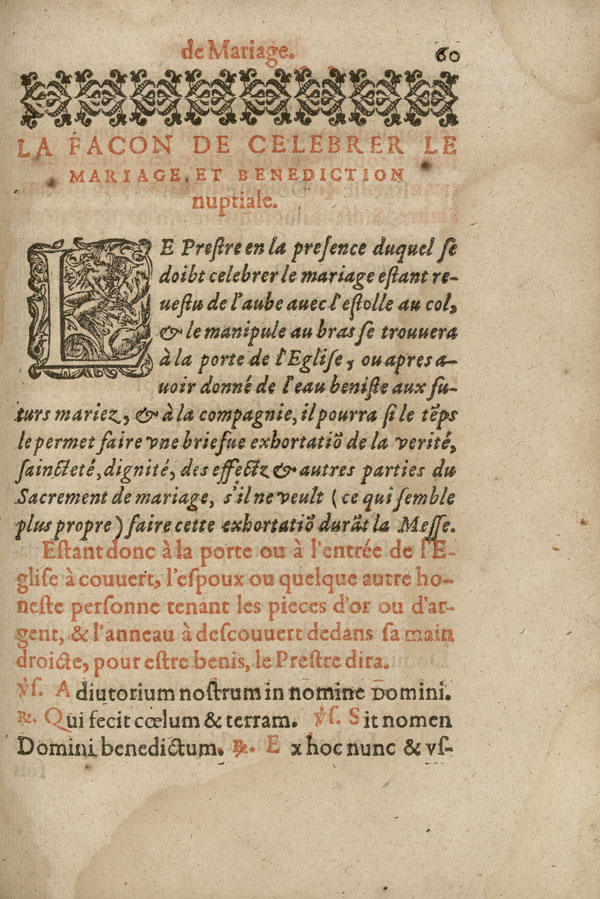 de Mariage. 60
LA FACON DE CELEBRER LE
MARIAGE, ET BENEDICTION
nuptiale.
LE Prestre en la presence duquel se
doibt celebrer le mariage estant re-
uestu de l'aube auec l'estolle au col,
& le manipule au bras se trouuera
à la porte de l'Eglise, ou apres a-
uoir donné de l'eau beniste aux fu-
turs mariez, & à la compagnie, il pourra si le tẽps
le permet faire vne briefue exhortatiõ de la verité,
saincteté, dignité, des effectz & autres parties du
Sacrement de mariage, s'il ne veult (ce qui semble
plus propre) faire cette exhortatiõ durãt la Messe.
Estant donc à la porte ou à l'entrée de l'E-
glise à couuert, l'espoux ou quelque autre ho-
neste personne tenant les pieces d'or ou d'ar-
gent, & l'anneau à descouuert dedans sa main
droicte, pour estre benis, le Prestre dira.
℣s. Adiutorium nostrum in nomine Domini.
℟. Qui fecit cœlum & terram. ℣s. Sit nomen
Domini benedictum. ℟. Ex hoc nunc & vs-